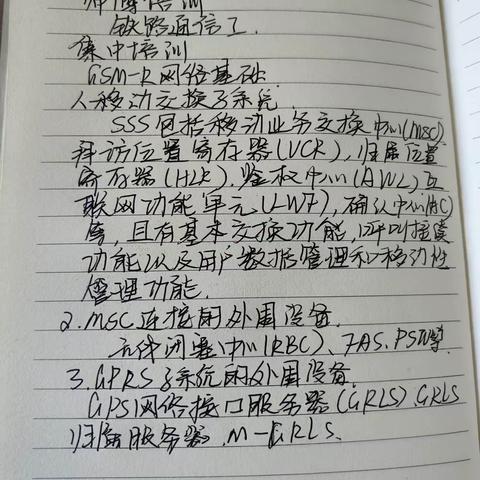 师傅培训
铁路通信工.
集中培训
GSM-R网络基础.
人移动交换子系统.
SSS包括移动业务交换中心(MSC)
拜访位置寄存器(VCR),归属位置
寄存器(HLR),鉴权中心(AWL)互
联网功能单元(LWF),确认中心(AC)
等,且有基本交换功能,呼叫接续
功能以及用户数据管理和移动性
管理功能.
2.MSC连接的外围设备.
无线闭塞中心(RBC)、FAS、PSTN等.
3.GPRS子系统的外围设备.
GPS网络接口服务器(GRLS).GRLS
归属服务器.M-GRLS.